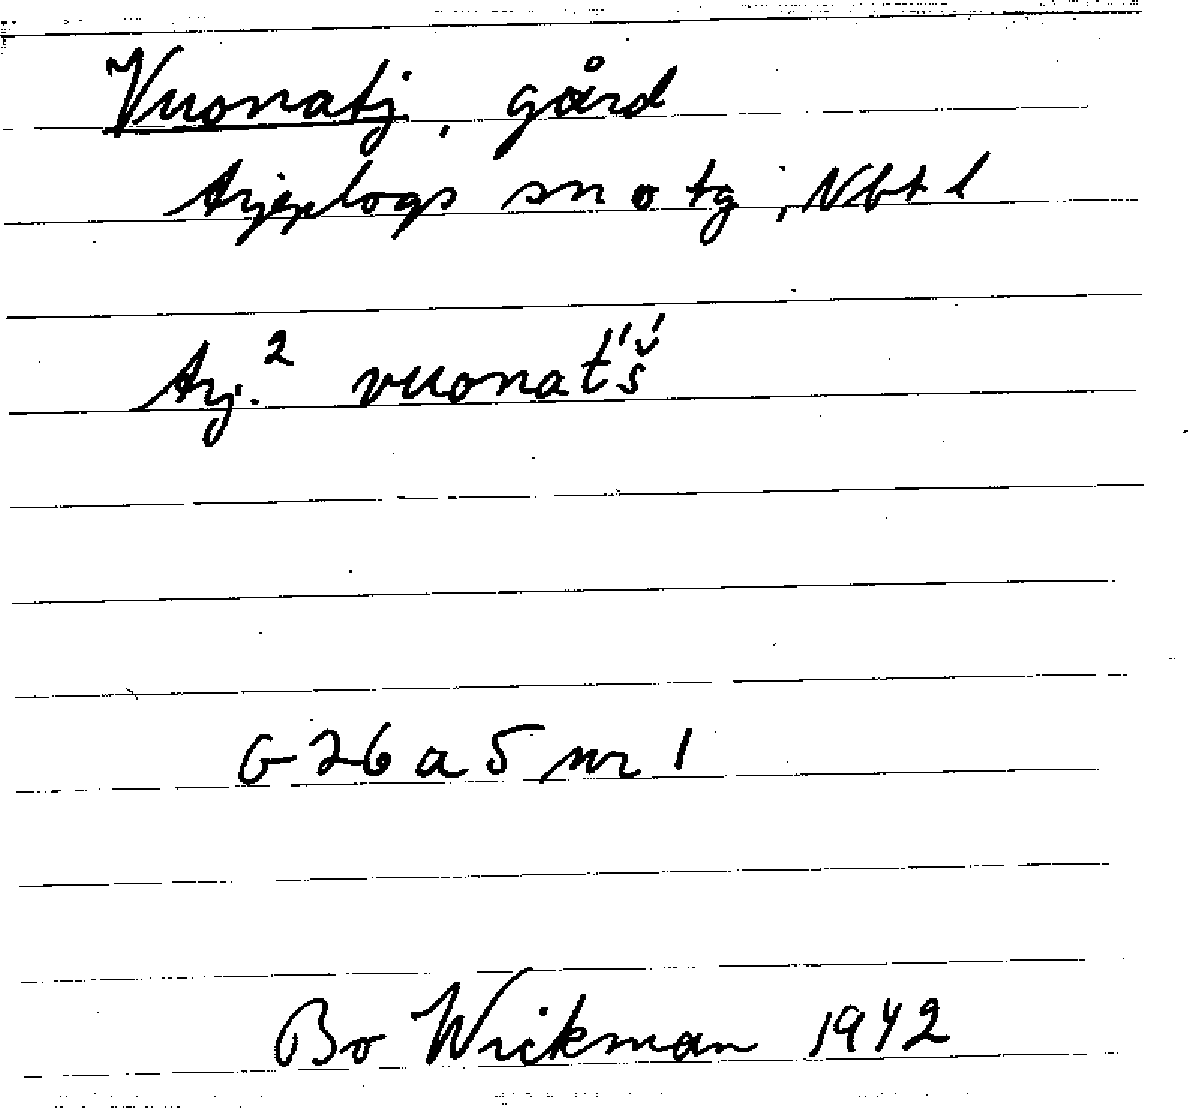 Vuonatj, gård
Arjeplogs sn o tg, Nbt l
Arj.² vuonat́š́
G 26 a 5 nr 1
Bo Wickman 1942